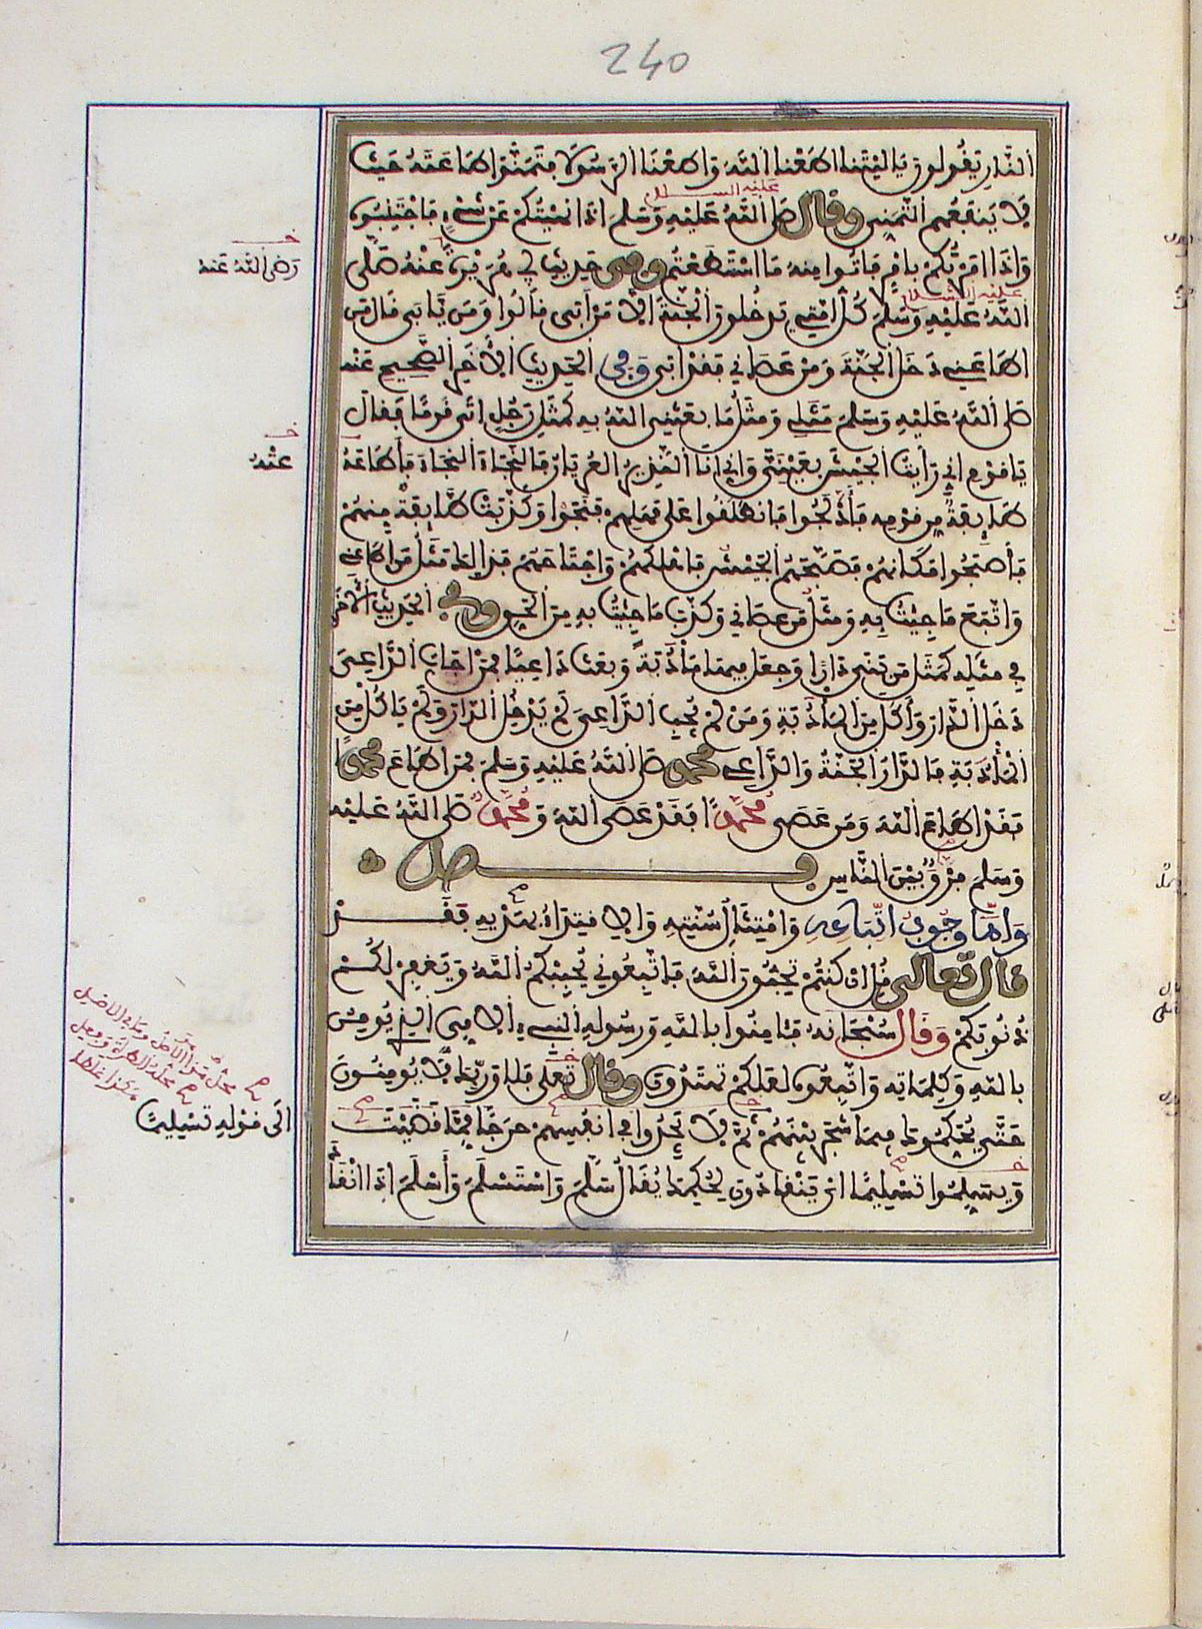 240
النار يقولون يا ليتنا أطعنا الله وأطعنا الرسولا فتمنوا طاعته حيث
لا ينفعهم التمني وقال صلى الله عليه وسلم إذا نهيتكم عن شيء فاجتنبوه
عليه السلام
وإذا أمرتكم بأمر فأتوا منه ما استطعتم وفي حديث أبي هريرة عنه صلى
رضي الله عنه
الله عليه وسلم كل أمتي يدخلون الجنة إلا من أبى قالوا ومن يأبى قال من
عليه السلام
أطاعني دخل الجنة ومن عصاني فقد أبى وفي الحديث الآخر الصحيح عنه
صلى الله عليه وسلم مثلي ومثل ما بعثني الله به كمثل رجل أتى قوما فقال
يا قوم إني رأيت الجيش بعيني وإني أنا النذير العريان فالنجاة النجاة فأطاعه
عنه
طايفة من قومه فأدلجوا فانطلقوا على مهلهم فنجوا وكذبت طايفة منهم
فأصبحوا مكانهم فصبحهم الجيش فأهلكهم واجتاحهم فذلك مثل من أطاعني
واتبع ما جئت به ومثل من عصاني وكذب ما جئت به من الحق وفي الحديث الآخر
في مثله كمثل من بنى دارا وجعل فيها مأدبة وبعث داعيا فمن أجاب الداعي
دخل الدار وأكل من المأدبة ومن لم يجب الداعي لم يدخل الدار ولم ياكل من
المأدبة فالدار الجنة والداعي محمد صلى الله عليه وسلم فمن أطاع محمدا
فقد أطاع الله ومن عصى محمدا فقد عصى الله ومحمد صلى الله عليه
وسلم فرق بين الناس فصل
وأما وجوب اتباعه وامتثال سنته والاقتداء بهديه فقد
قال تعالى قل إن كنتم تحبون الله فاتبعوني يحببكم الله ويغفر لكم
ذنوبكم وقال سبحانه فئامنوا بالله ورسوله النبيء الامي الذي يومن
بالله وكلماته واتبعوه لعلكم تهتدون وقال تعلى فلا وربك لا يومنون
حتى يحكموك فيما شجر بينهم ثم لا يجدوا في أنفسهم حرجا مما قضيت
إلى قوله تسليما
ويسلموا تسليما أي ينقادون لحكمك يقال سلم واستسلم وأسلم إذا انقاد